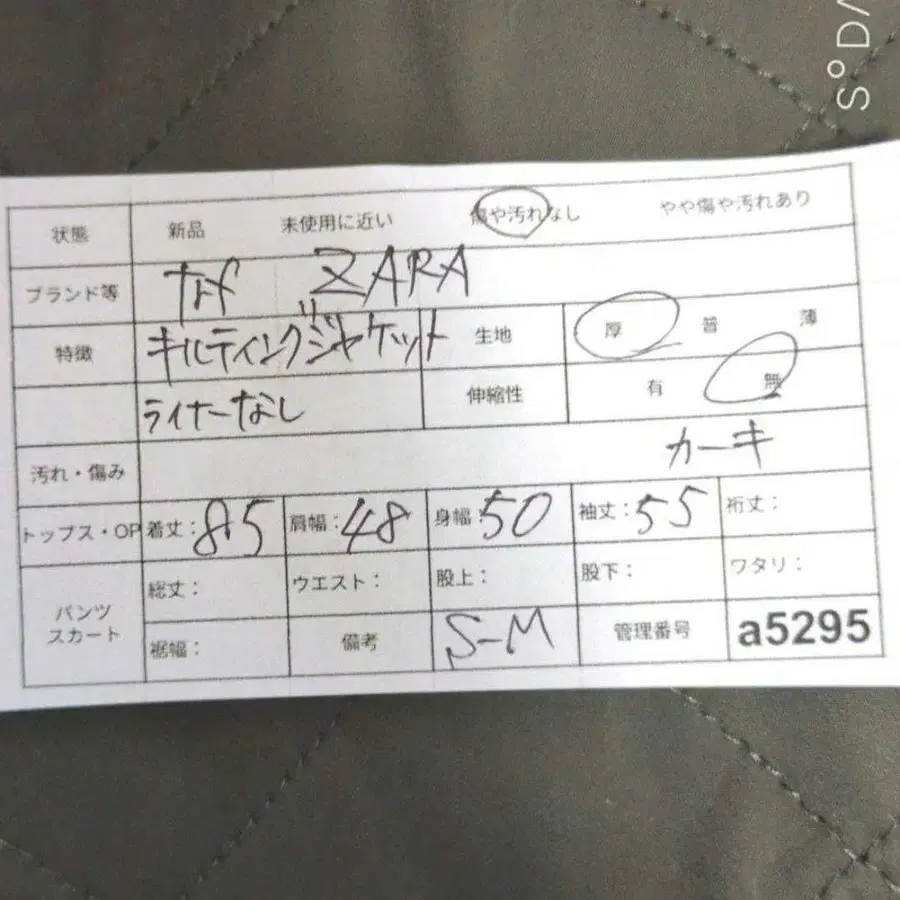 S°D
状態 新品 未使用に近い 傷や汚れなし やや傷や汚れあり
ブランド等 trf ZARA
特徴 キルティングジャケット 生地 厚 普 薄
ライナーなし 伸縮性 有 無
汚れ・傷み カーキ
トップス・OP 着丈：85 肩幅：48 身幅：50 袖丈：55 裄丈：
パンツ スカート 総丈： ウエスト： 股上： 股下： ワタリ：
裾幅： 備考 S-M 管理番号 a5295